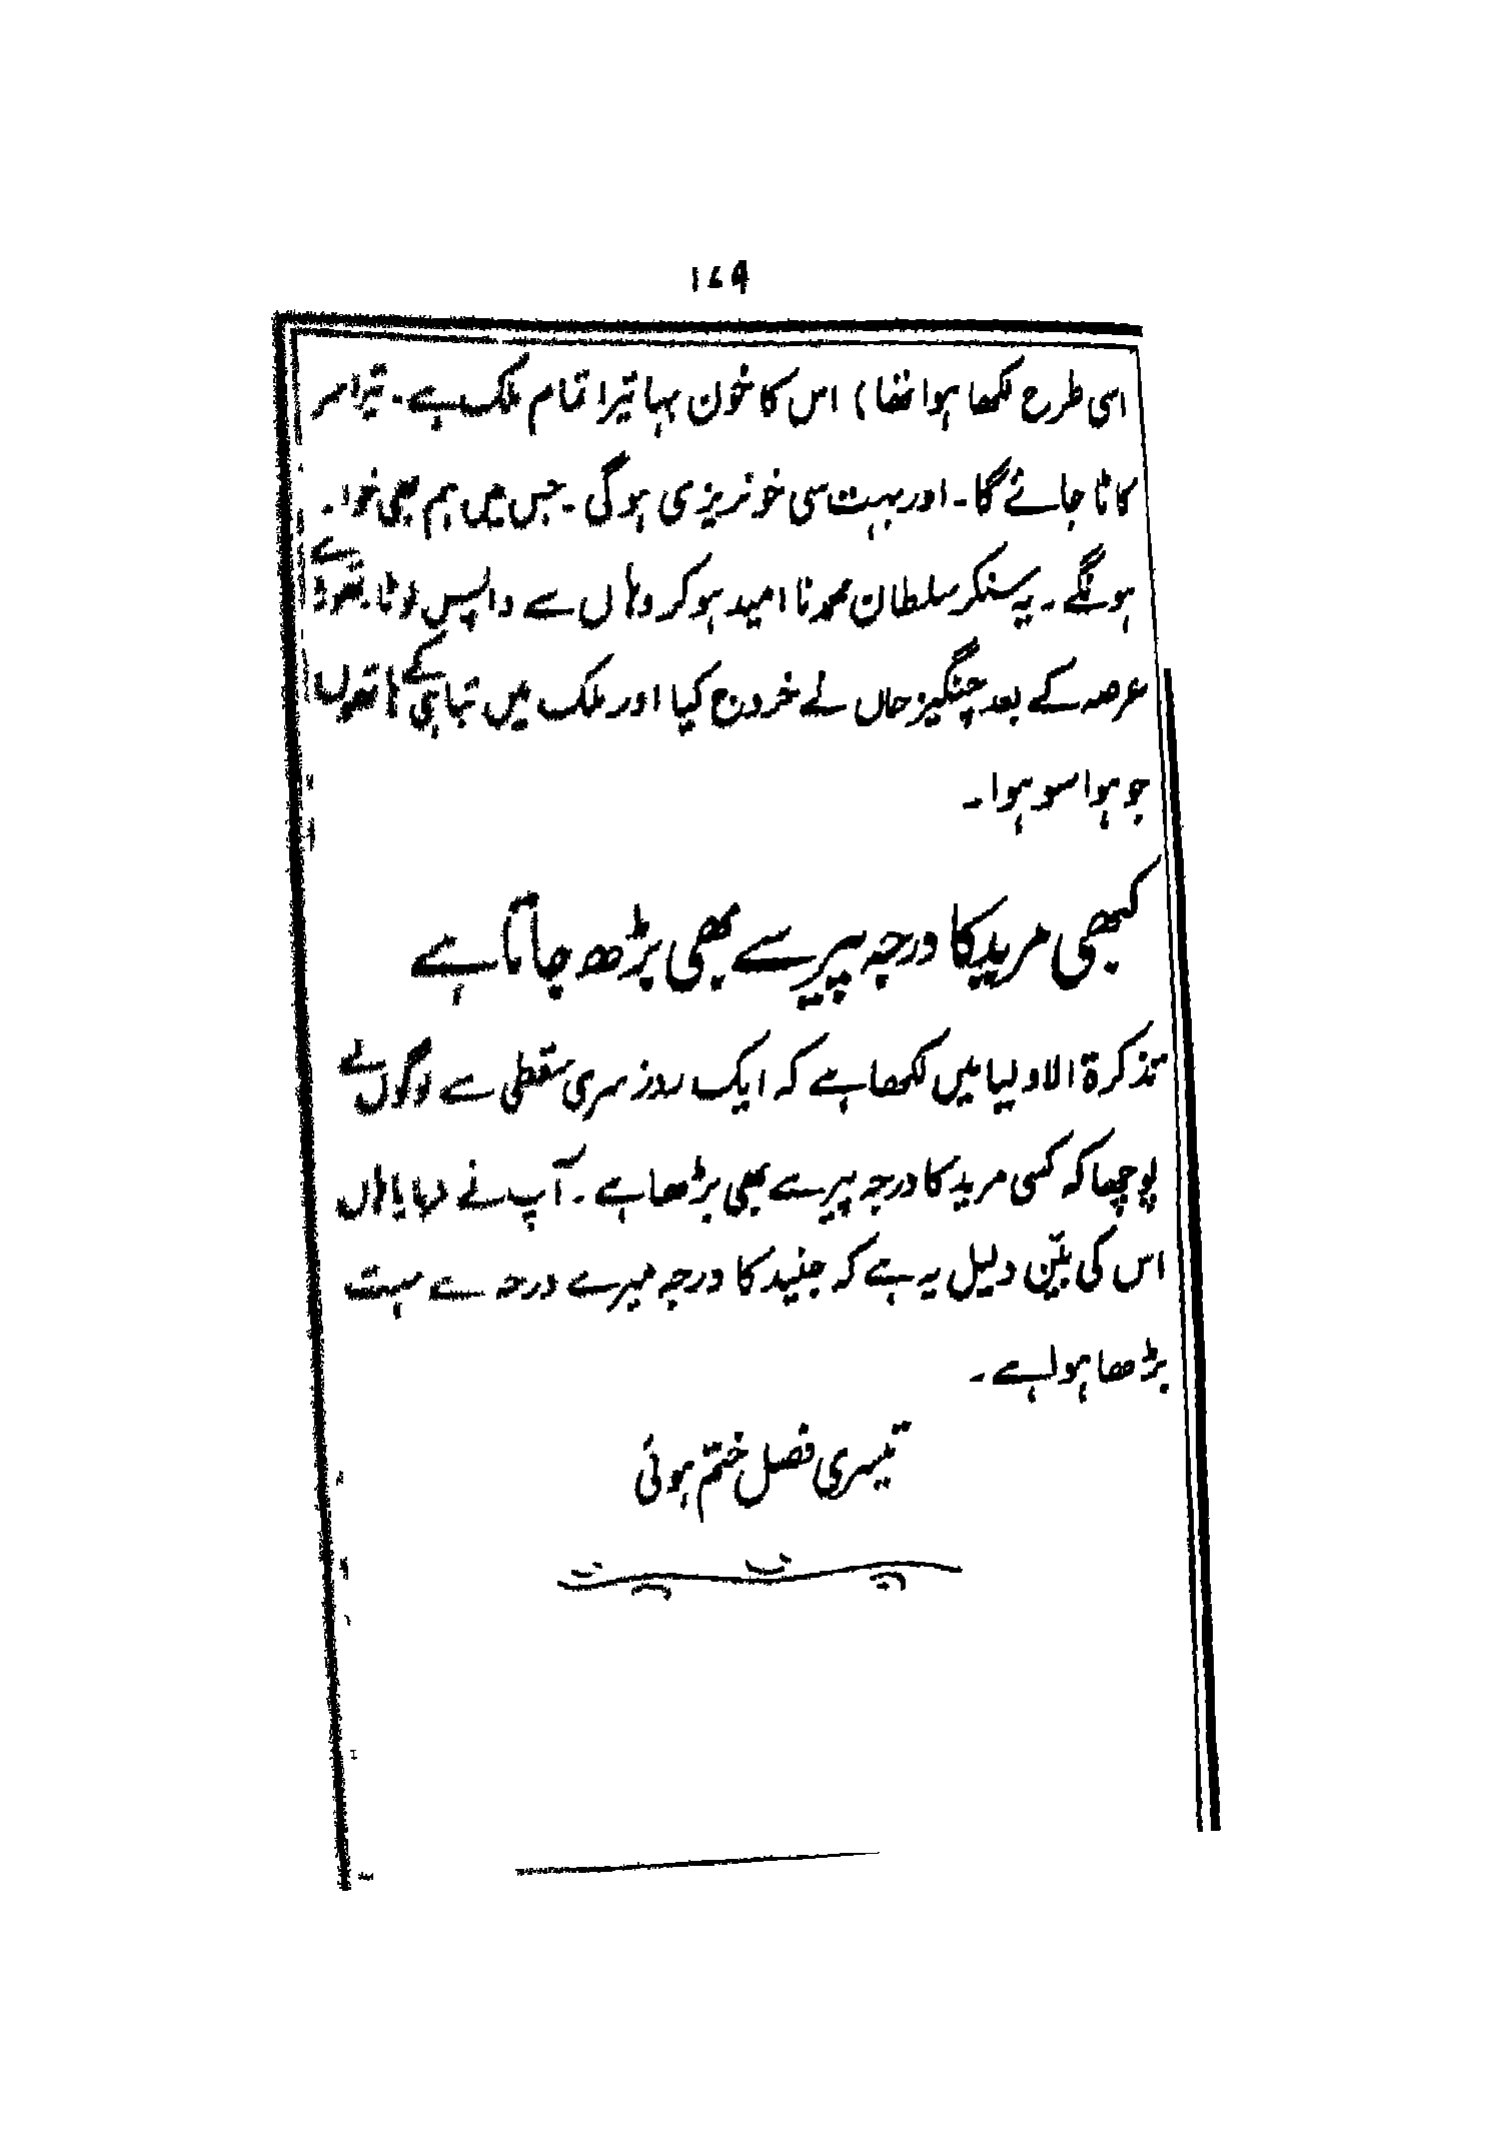 ۱۷۹
اسی طرح لکھا ہوا تھا) اس کا خون بہا تیرا تمام ملک ہے۔ تیرا سر
کاٹا جائے گا۔ اور بہت سی خونریزی ہوگی۔ جس میں ہم بھی خوا۔
ہونگے۔ یہ سنکر سلطان محمد نا امید ہوکر وہاں سے واپس لوٹا۔ تھوڑے
عرصہ کے بعد چنگیز خاں نے خروج کیا اور ملک میں تباہی کے ہاتھوں
جو ہوا سو ہوا۔
کبھی مرید کا درجہ پیر سے بھی بڑھ جاتا ہے
تذکرۃ الاولیا میں لکھا ہے کہ ایک روز سری سقطی سے لوگوں نے
پوچھا کہ کسی مرید کا درجہ پیر سے بھی بڑھا ہے۔ آپ نے فرمایا ہاں
اس کی بیّن دلیل یہ ہے کہ جنید کا درجہ میرے درجہ سے بہت
بڑھا ہوا ہے۔
تیسری فصل ختم ہوئی